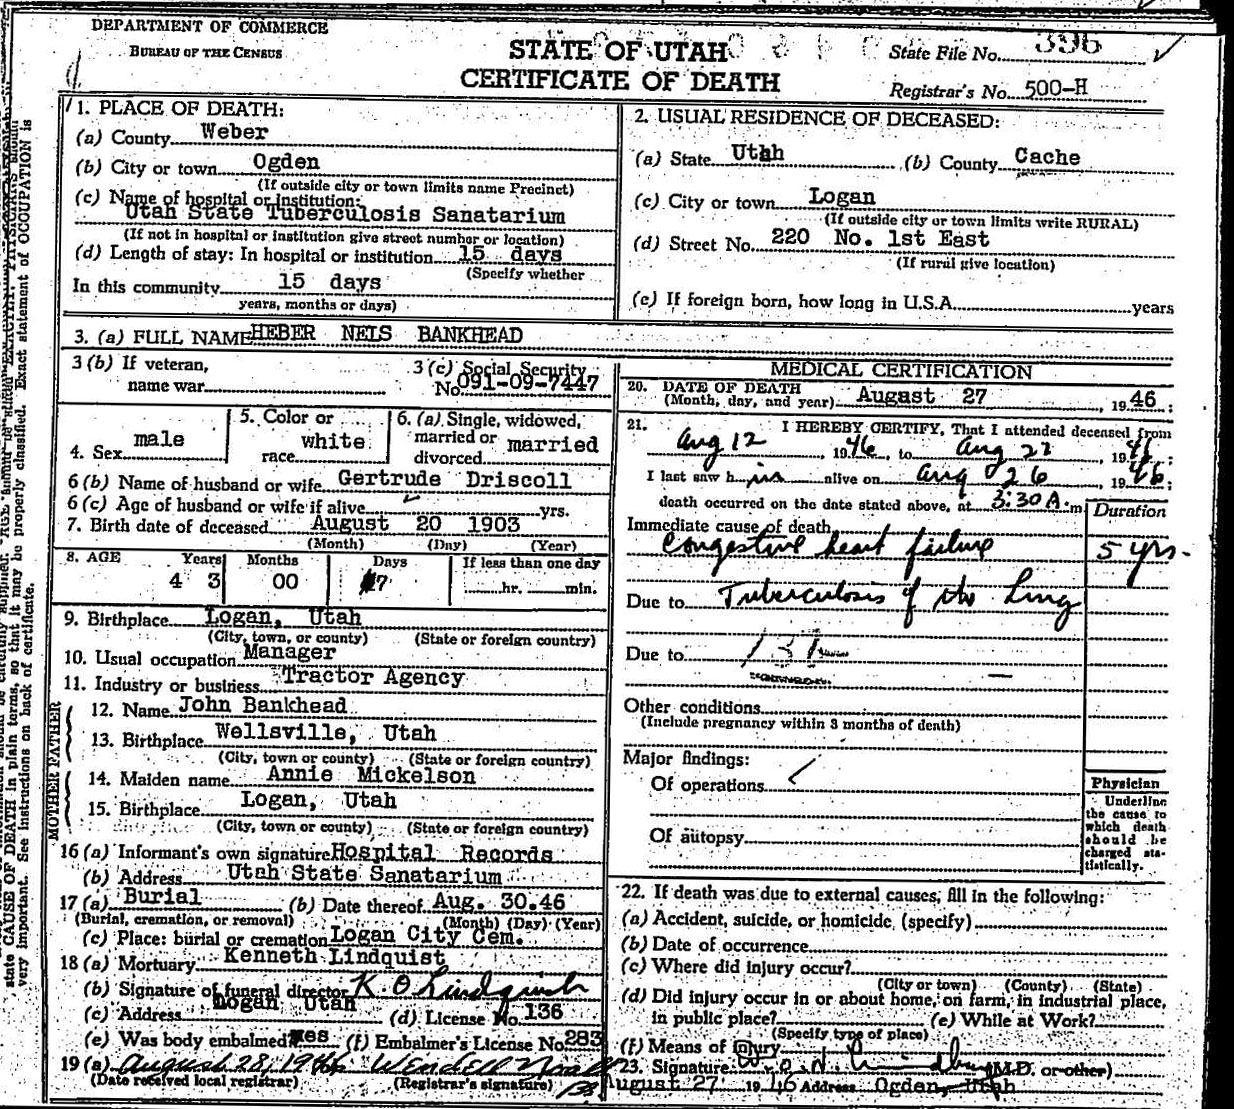 DEPARTMENT OF COMMERCE
BUREAU OF THE CENSUS
STATE OF UTAH
CERTIFICATE OF DEATH
State File No. 396
Registrar's No. 500-H
1. PLACE OF DEATH:
(a) County Weber
(b) City or town Ogden
(If outside city or town limits name Precinct)
(c) Name of hospital or institution:
Utah State Tuberculosis Sanatarium
(If not in hospital or institution give street number or location)
(d) Length of stay: In hospital or institution 15 days
(Specify whether
In this community 15 days
years, months or days)
2. USUAL RESIDENCE OF DECEASED:
(a) State Utah (b) County Cache
(c) City or town Logan
(If outside city or town limits write RURAL)
(d) Street No. 220 No. 1st East
(If rural give location)
(e) If foreign born, how long in U.S.A. years
3. (a) FULL NAME HEBER NELS BANKHEAD
3 (b) If veteran,
name war
3 (c) Social Security
No. 091-09-7447
4. Sex male
5. Color or
race white
6. (a) Single, widowed,
married or
divorced married
6 (b) Name of husband or wife Gertrude Driscoll
6 (c) Age of husband or wife if alive yrs.
7. Birth date of deceased August 20 1903
(Month) (Day) (Year)
8. AGE Years Months Days If less than one day
43 00 7 hr. min.
9. Birthplace Logan, Utah
(City, town, or county) (State or foreign country)
10. Usual occupation Manager
11. Industry or business Tractor Agency
FATHER
12. Name John Bankhead
13. Birthplace Wellsville, Utah
(City, town or county) (State or foreign country)
MOTHER
14. Maiden name Annie Mickelson
15. Birthplace Logan, Utah
(City, town or county) (State or foreign country)
16 (a) Informant's own signature Hospital Records
(b) Address Utah State Sanatarium
17 (a) Burial (b) Date thereof Aug. 30.46
(Burial, cremation, or removal) (Month) (Day) (Year)
(c) Place: burial or cremation Logan City Cem.
18 (a) Mortuary Kenneth Lindquist
(b) Signature of funeral director K O Lindquist
(c) Address Logan Utah (d) License No. 136
(e) Was body embalmed? yes (f) Embalmer's License No. 283
19 (a) August 28, 1946 Wendell
(Date received local registrar) (Registrar's signature)
MEDICAL CERTIFICATION
20. DATE OF DEATH
(Month, day, and year) August 27, 1946;
21. I HEREBY CERTIFY, That I attended deceased from
Aug 12, 1946, to Aug 27, 1946;
I last saw him alive on Aug 26, 1946;
death occurred on the date stated above, at 3:30 A. m
Duration
Immediate cause of death
Congestive heart failure 5 yrs.
Due to Tuberculosis of the Lung
Due to
Other conditions
(Include pregnancy within 3 months of death)
Major findings:
Of operations
Of autopsy
Physician
Underline
the cause to
which death
should be
charged sta-
tistically.
22. If death was due to external causes, fill in the following:
(a) Accident, suicide, or homicide (specify)
(b) Date of occurrence
(c) Where did injury occur?
(City or town) (County) (State)
(d) Did injury occur in or about home, on farm, in industrial place,
in public place? (e) While at Work?
(Specify type of place)
(f) Means of injury
23. Signature (M.D. or other)
August 27 1946 Address Ogden, Utah
state CAUSE OF DEATH in plain terms, so that it may be properly classified. Exact statement of OCCUPATION is
very important. See instructions on back of certificate.